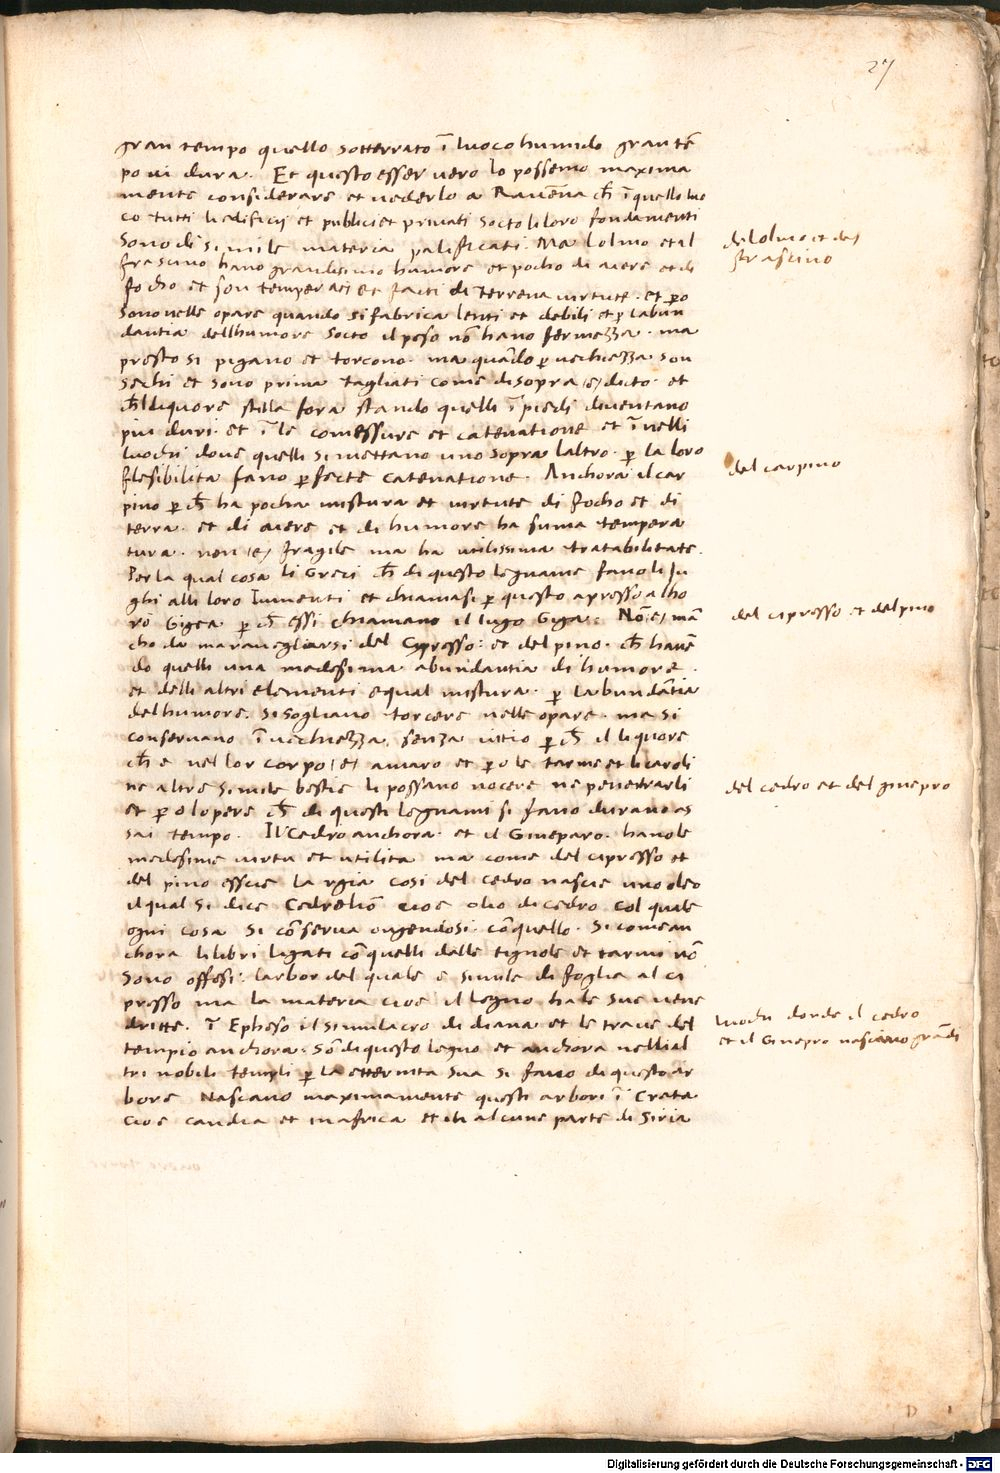 27
gran tempo quello sotterrato ī luoco humido gran tē
po vi dura. Et questo esser vero lo possemo maxima
mente considerare et vederlo a Ravēna ch̄ ī quello luo
co tutti li edificij et publici et privati socto li loro fondamenti
sono di simile materia palificati. Ma lolmo et il
frascino hano grandissimo humore et pocho di aiere et di
focho et son temperati et facti di terrena virtute. et ꝑo
sono nelle opare quando si fabrica lenti et debili et ꝑ labun
dantia dellhumore socto il peso nō hano fermezza. ma
presto si pigano et torcono. ma quādo ꝑ vechiezza son
sechi et sono prima tagliati come disopra (e) dicto. et
ch̄l liquore stilla fora stando quelli ī piedi diventano
piu duri. et ī le comessure et catenatione et ī nelli
luochi dove quelli si mettano uno sopra laltro. ꝑ la loro
flesibilita fano ꝑfecte catenatione. Anchora il car
pino ꝑ ch̄ ha pocha mistura et virtute di focho et di
terra. et di aiere et di humore ha suma tempera
tura. non (e) fragile ma ha utilissima tratabilitate.
Per la qual cosa li Greci ch̄ di questo legname fano li Ju
ghi alli loro Iumenti et chiamasi ꝑ questo apresso alho
ro Gigea ꝑ ch̄ essi chiamano il iugo Giga. Nō (e) mā
cho da maravegliarsi del Cypresso: et del pino. ch̄ havē
do quelli una medesima abundantia di humore.
et delli altri elementi equal mistura. ꝑ labundātia
del humore. si sogliano torcere nelle opare. ma si
conservano ī vechiezza senza vitio ꝑ ch̄ il liquore
ch̄ e nel lor corpo (e) amaro et ꝑo le tarme et li caroli
ne altre simile bestie li possano nocere ne penetrarli
et ꝑo lopere ch̄ di questi legnami si fano durano as
sai tempo. Il Cedro anchora. et il Gineparo. hano le
medesime virtu et utilita ma come del cipresso et
del pino escie la rgia cosi del cedro nascie uno oleo
il qual si dice Cedreliō cioe olio di cedro col quale
ogni cosa si cōserva ongendosi. cō quello. si come an
chora li libri ligati cō quelli dalle tignole et tarmi nō
sono offesi. larbor del quale e simile di foglia al ci
presso ma la materia cioe il legno ha le sue vene
dritte. ī Epheso il simulacro di diana et le trave del
tempio anchora. Sō di questo legno et anchora nelli al
tri nobili templi ꝑ la etternita sua si fano di questo ar
bore Nascano maximamente questi arbori ī Creta
cioe candia et in africa et in alcune parte di Siria
del olmo et del
frascino
del carpino
del cipresso et del pino
del cedro et del ginepro
luochi donde il cedro
et il Ginepro nasciano grādi
D 1
Digitalisierung gefördert durch die Deutsche Forschungsgemeinschaft - DFG